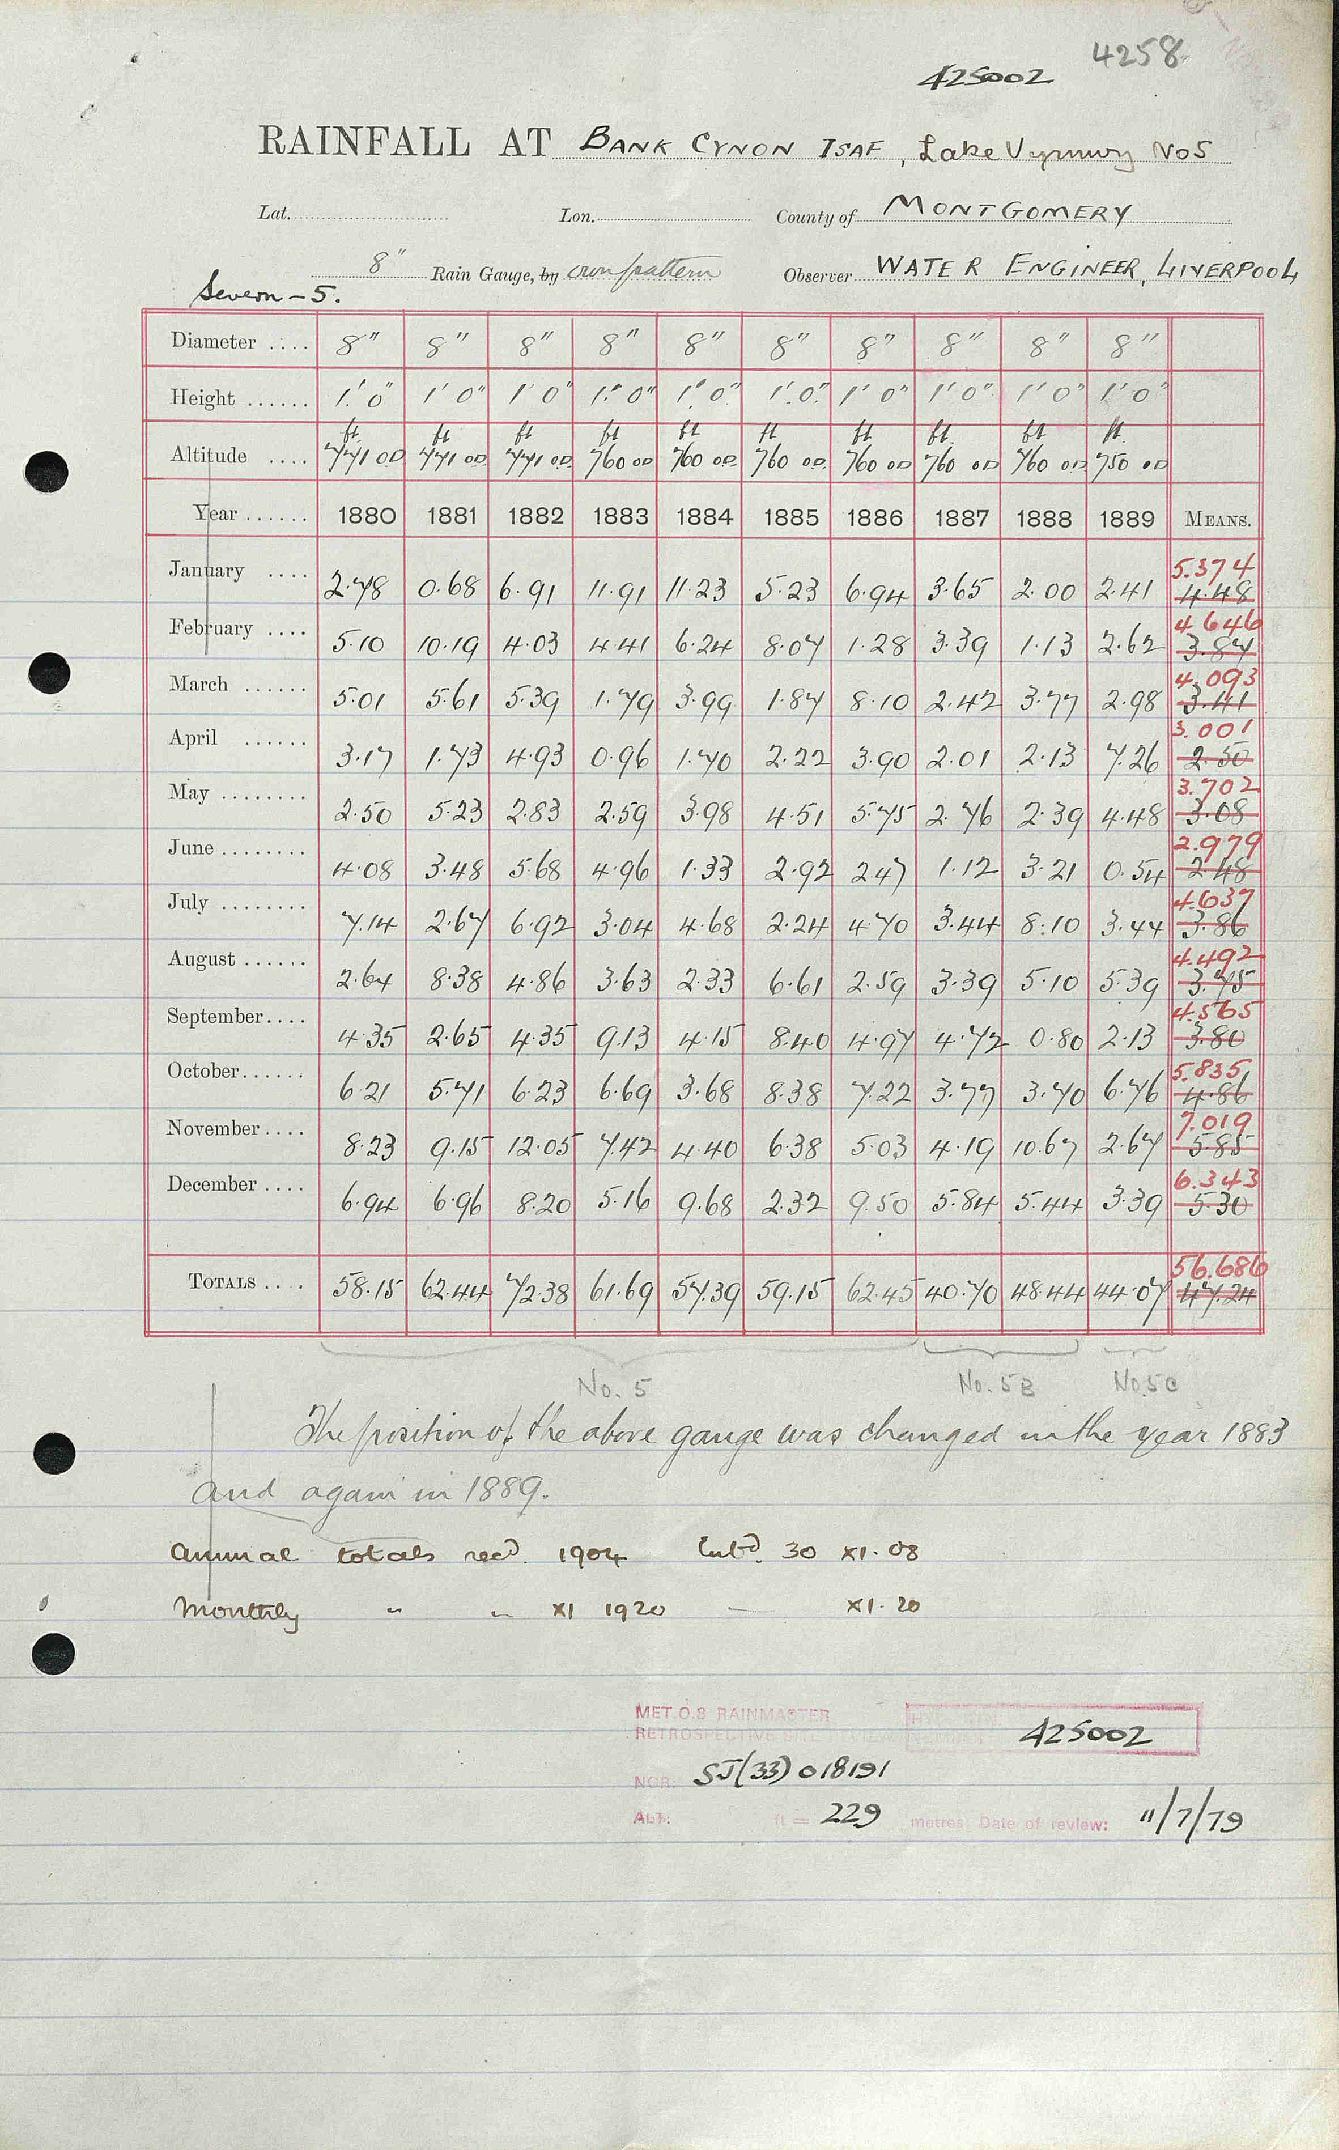 4258
425002
RAINFALL AT BANK CYNON ISAF, Lake Vyrnwy No 5
Lat. Lon. County of MONTGOMERY
8" Rain Gauge, by own pattern Observer WATER ENGINEER, LIVERPOOL
Severn - 5.
Diameter .... 8" 8" 8" 8" 8" 8" 8" 8" 8" 8"
Height ...... 1' 0" 1' 0" 1' 0" 1' 0" 1' 0" 1' 0" 1' 0" 1' 0" 1' 0" 1' 0"
ft ft ft ft ft ft ft ft ft ft.
Altitude .... 771 OD 771 OD 771 OD 760 OD 760 OD 760 OD 760 OD 760 OD 760 OD 750 OD
Year ...... 1880 1881 1882 1883 1884 1885 1886 1887 1888 1889 MEANS.
5.374
January .... 2.78 0.68 6.91 11.91 11.23 5.23 6.94 3.65 2.00 2.41 4.48
4.646
February .... 5.10 10.19 4.03 4.41 6.24 8.07 1.28 3.39 1.13 2.62 3.87
4.093
March ...... 5.01 5.61 5.39 1.79 3.99 1.87 8.10 2.42 3.77 2.98 3.41
3.001
April ...... 3.17 1.73 4.93 0.96 1.70 2.22 3.90 2.01 2.13 7.26 2.50
3.702
May ........ 2.50 5.23 2.83 2.59 3.98 4.51 5.75 2.76 2.39 4.48 3.08
2.979
June ........ 4.08 3.48 5.68 4.96 1.33 2.92 2.47 1.12 3.21 0.54 2.48
4.637
July ........ 7.14 2.67 6.92 3.04 4.68 2.24 4.70 3.44 8.10 3.44 3.86
4.492
August ...... 2.64 8.38 4.86 3.63 2.33 6.61 2.59 3.39 5.10 5.39 3.75
4.565
September.... 4.35 2.65 4.35 9.13 4.15 8.40 4.97 4.72 0.80 2.13 3.80
5.835
October...... 6.21 5.71 6.23 6.69 3.68 8.38 7.22 3.77 3.70 6.76 4.86
7.019
November.... 8.23 9.15 12.05 7.42 4.40 6.38 5.03 4.19 10.67 2.67 5.85
6.343
December .... 6.94 6.96 8.20 5.16 9.68 2.32 9.50 5.84 5.44 3.39 5.30
56.686
TOTALS .... 58.15 62.44 72.38 61.69 57.39 59.15 62.45 40.70 48.44 44.07 47.24
No. 5 No. 5B No. 5C
The position of the above gauge was changed in the year 1883
and again in 1889.
Annual totals recd. 1904 Entd. 30 XI.08
Monthly " " XI 1920 — XI.20
MET.O.8 RAINMASTER
RETROSPECTIVE 425002
NGR: SJ(33)018191
ALT: ft = 229 metres Date of review: 11/7/79